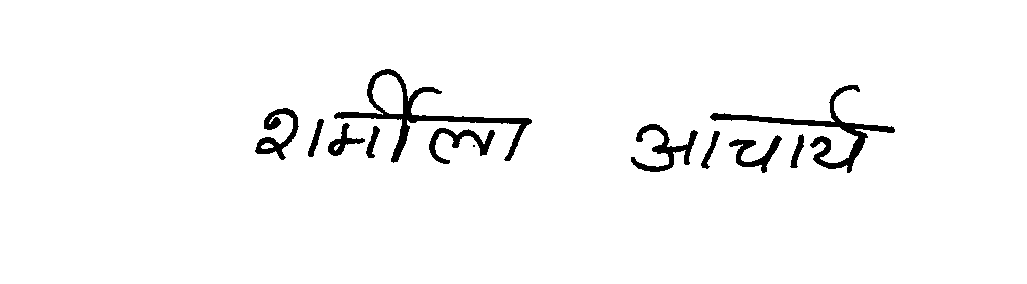 शर्मीला आचार्य